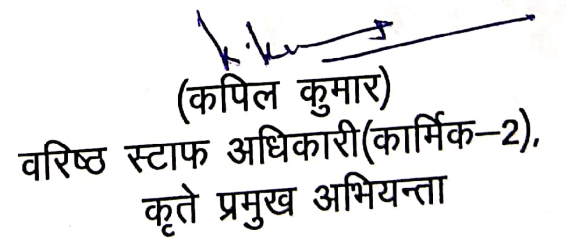 (कपिल कुमार)
वरिष्ठ स्टाफ अधिकारी(कार्मिक–2),
कृते प्रमुख अभियन्ता